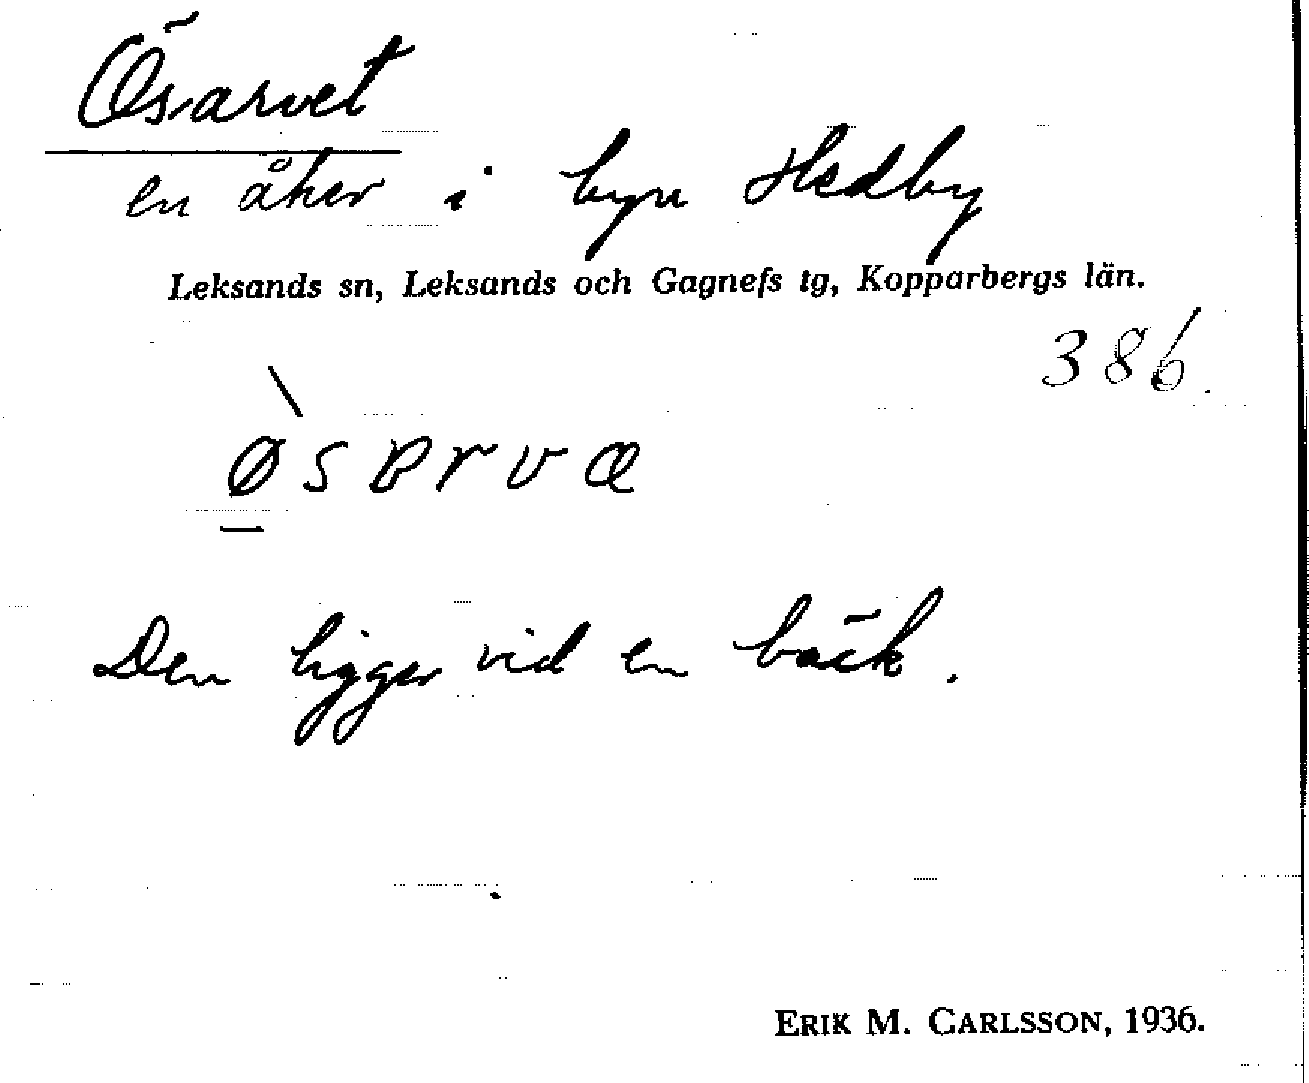 Ösarvet
en åker i byn Hedby
Leksands sn, Leksands och Gagnefs tg, Kopparbergs län.
386.
ø̠̀sɐrvæ
Den ligger vid en bäck.
ERIK M. CARLSSON, 1936.